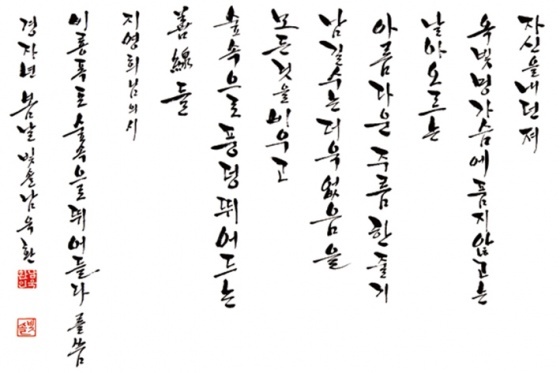 자신을 내던져
옥빛 멍 가슴에 품지 않고는
날아오르는
아름다운 주름 한 줄기
남길 수는 더욱 없음을
모든 것을 비우고
숲속으로 풍덩 뛰어드는
善線들
지영희님의 시
비룡폭포 숲속으로 뛰어들다 를 씀
경자년 봄날